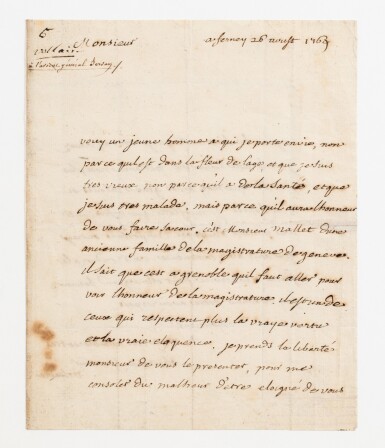 6
voltaire Monsieur
a ferney 26 auust 1769
a l'avocat général Servan
voicy un jeune homme a qui je porte envie, non
parce quil est dans la fleur de lage, et que je suis
tres vieux, non parce qu'il a de la santé, et que
je suis tres malade, mais parce qu'il aura lhonneur
de vous faire sa cour, c'est Monsieur Mallet dune
ancienne famille de la magistrature de geneve.
il sait que cest a grenoble quil faut aller pour
voir lhonneur de la magistrature. il est un de
ceux qui respectent plus la vraye vertu
et la vraie eloquence. je prends la liberté
monsieur de vous le presenter, pour me
consoler du malheur d'etre eloigné de vous